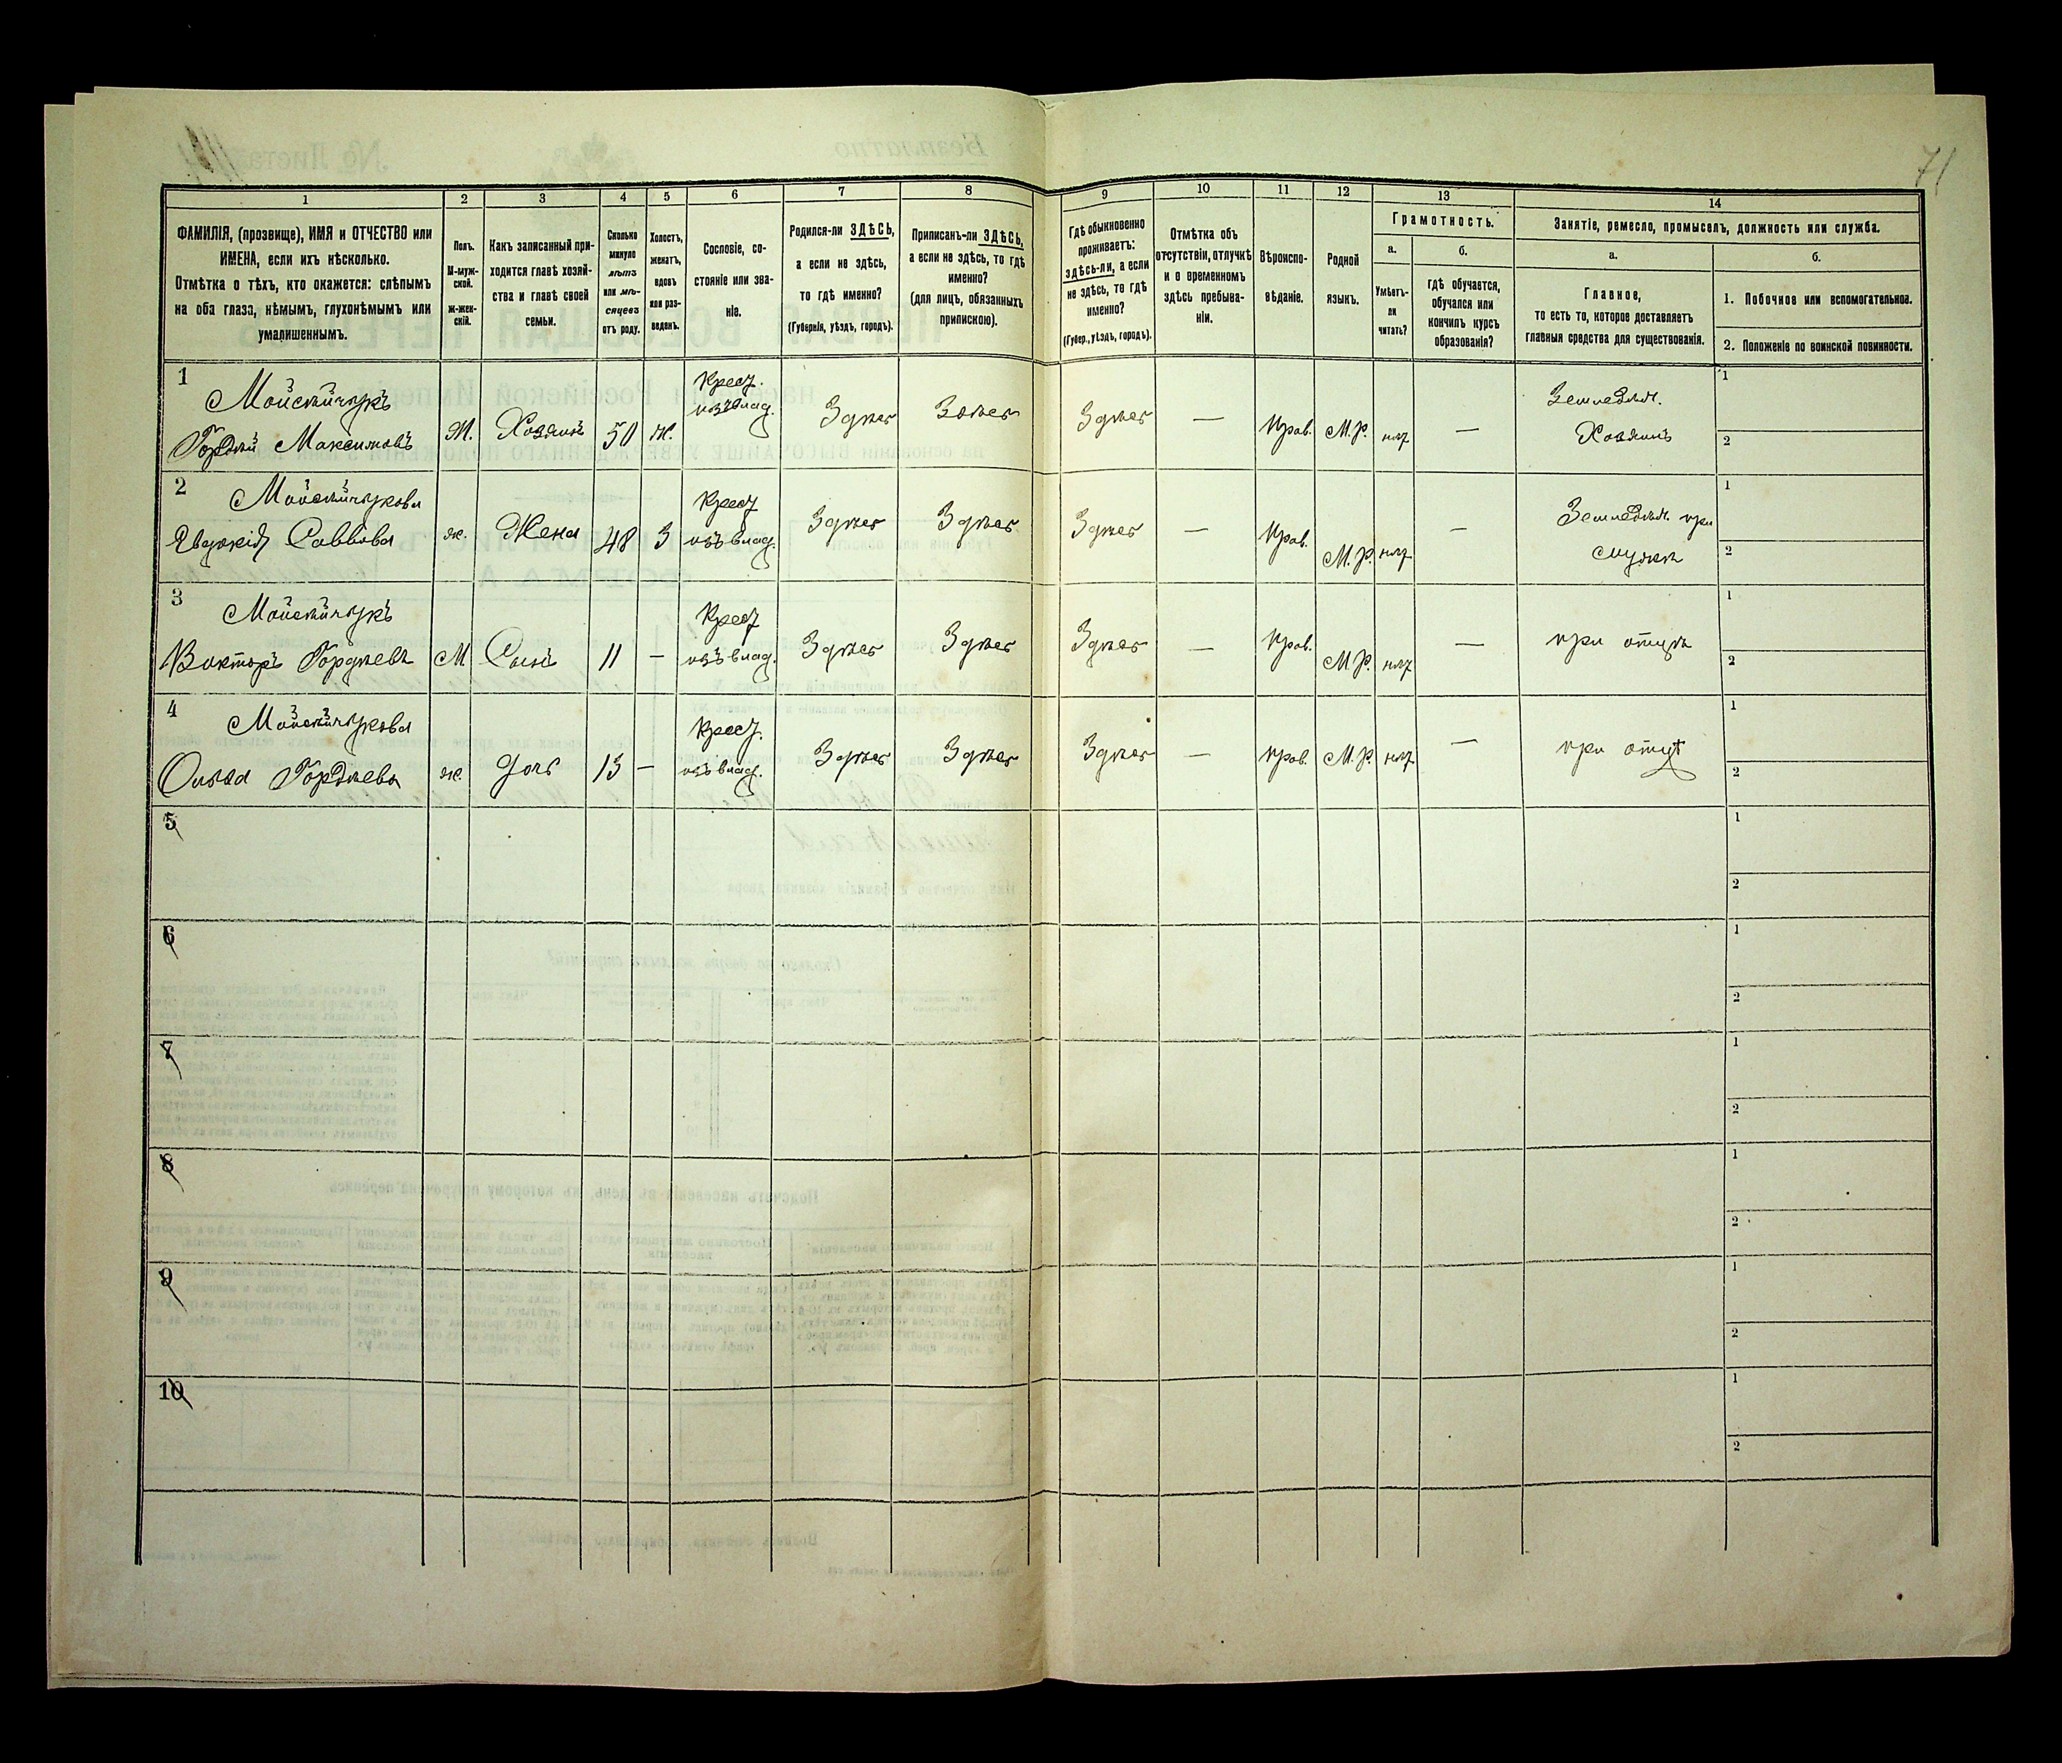 71
1
2
3
4
5
6
7
8
9
10
11
12
13
14
ФАМИЛІЯ, (прозвище), ИМЯ и ОТЧЕСТВО или
ИМЕНА, если ихъ нѣсколько.
Отмѣтка о тѣхъ, кто окажется: слѣпымъ
на оба глаза, нѣмымъ, глухонѣмымъ или
умалишеннымъ.
Полъ.
М-муж-
ской.
Ж-жен-
скій.
Какъ записанный при-
ходится главѣ хозяй-
ства и главѣ своей
семьи.
Сколько
минуло
лѣтъ
или мѣ-
сяцевъ
отъ роду.
Холостъ,
женатъ,
вдовъ
или раз-
веденъ.
Сословіе, со-
стояніе или зва-
ніе.
Родился-ли ЗДѢСЬ,
а если не здѣсь,
то гдѣ именно?
(Губернія, уѣздъ, городъ).
Приписанъ-ли ЗДѢСЬ,
а если не здѣсь, то гдѣ
именно?
(для лицъ, обязанныхъ
припискою).
Гдѣ обыкновенно
проживаетъ:
здѣсь-ли, а если
не здѣсь, то гдѣ
именно?
(Губер., уѣздъ, городъ).
Отмѣтка объ
отсутствіи, отлучкѣ
и о временномъ
здѣсь пребыва-
ніи.
Вѣроиспо-
вѣданіе.
Родной
языкъ.
Грамотность.
а.
Умѣетъ-
ли
читать?
б.
гдѣ обучается,
обучался или
кончилъ курсъ
образованія?
Занятіе, ремесло, промыселъ, должность или служба.
а.
Главное,
то есть то, которое доставляетъ
главныя средства для существованія.
б.
1. Побочное или вспомогательное.
2. Положеніе по воинской повинности.
1
Гордѣй Максимовъ
М.
Хозяинъ
50
ж.
Крест.
изъ влад.
Здѣсь
Здѣсь
Здѣсь
—
Прав.
М.Р.
нѣт
—
Земледѣл.
Хозяинъ
1
2
2
Евдокія Саввова
ж.
Жена
48
З
Крест
изъ влад.
Здѣсь
Здѣсь
Здѣсь
—
Прав.
М.Р.
нѣт
—
Земледѣл. при
мужѣ
1
2
3
Викторъ Гордѣевъ
М
Сынъ
11
—
Крест
изъ влад.
Здѣсь
Здѣсь
Здѣсь
—
Прав.
М.Р.
нѣт
—
при отцѣ
1
2
4
Гордѣева
ж.
Дочь
13
—
Крест.
изъ влад.
Здѣсь
Здѣсь
Здѣсь
—
прав.
М.Р.
нѣт
—
при отцѣ
1
2
5
1
2
6
1
2
7
1
2
8
1
2
9
1
2
10
1
2